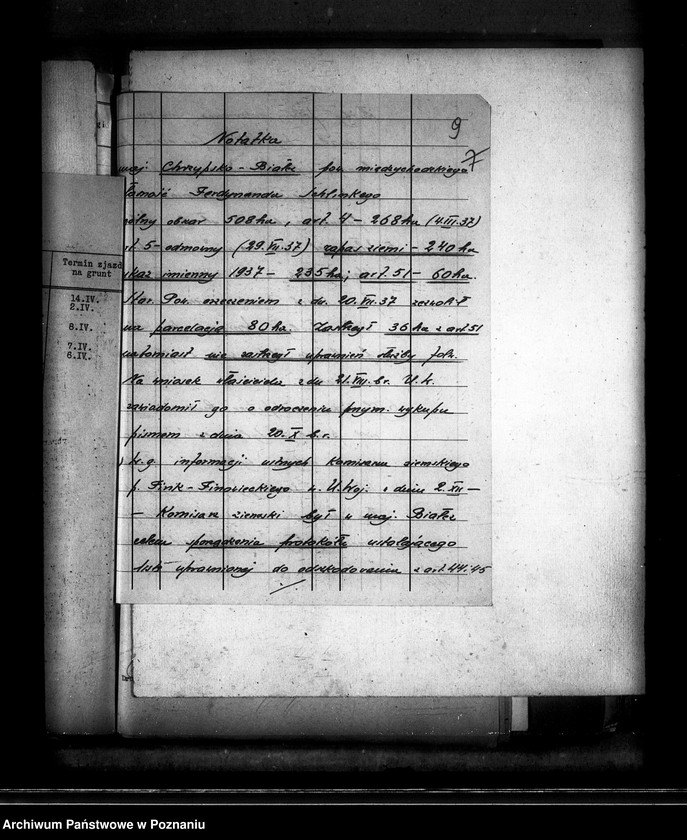 9
7
Notatka
maj Chrzypsko-Białcz pow. międzychodzkiego
Ferdynanda
obszar 508 ha, art. 4 - 268 ha (4.III.37)
art. 5 - odmowny (29.VII.37) zapas ziemi - 240 ha
wykaz imienny 1937 - 235 ha; art. 51 - 60 ha.
Star. Pow. orzeczeniem z dn. 20.VII.37 zezwolił
na parcelację 80 ha. Zastrzegł 36 ha z art 51
natomiast nie zastrzegł uprawnień służby folw.
Na wniosek właściciela z dn. 21.VIII. b.r. U.W.
zawiadomił go o odroczeniu przym. wykupu
pismem z dnia 20.X b.r.
W.g. informacji ustnych Komisarza ziemskiego
p. U. Woj. z dnia 2.XII -
- Komisarz ziemski był w maj. Białcz
celem sporządzenia protokółu ustalającego
listę uprawnionej do odszkodowania z art. 44.45
Termin zjazdu
na grunt
14.IV.
2.IV.
8.IV.
7.IV.
6.IV.
Archiwum Państwowe w Poznaniu